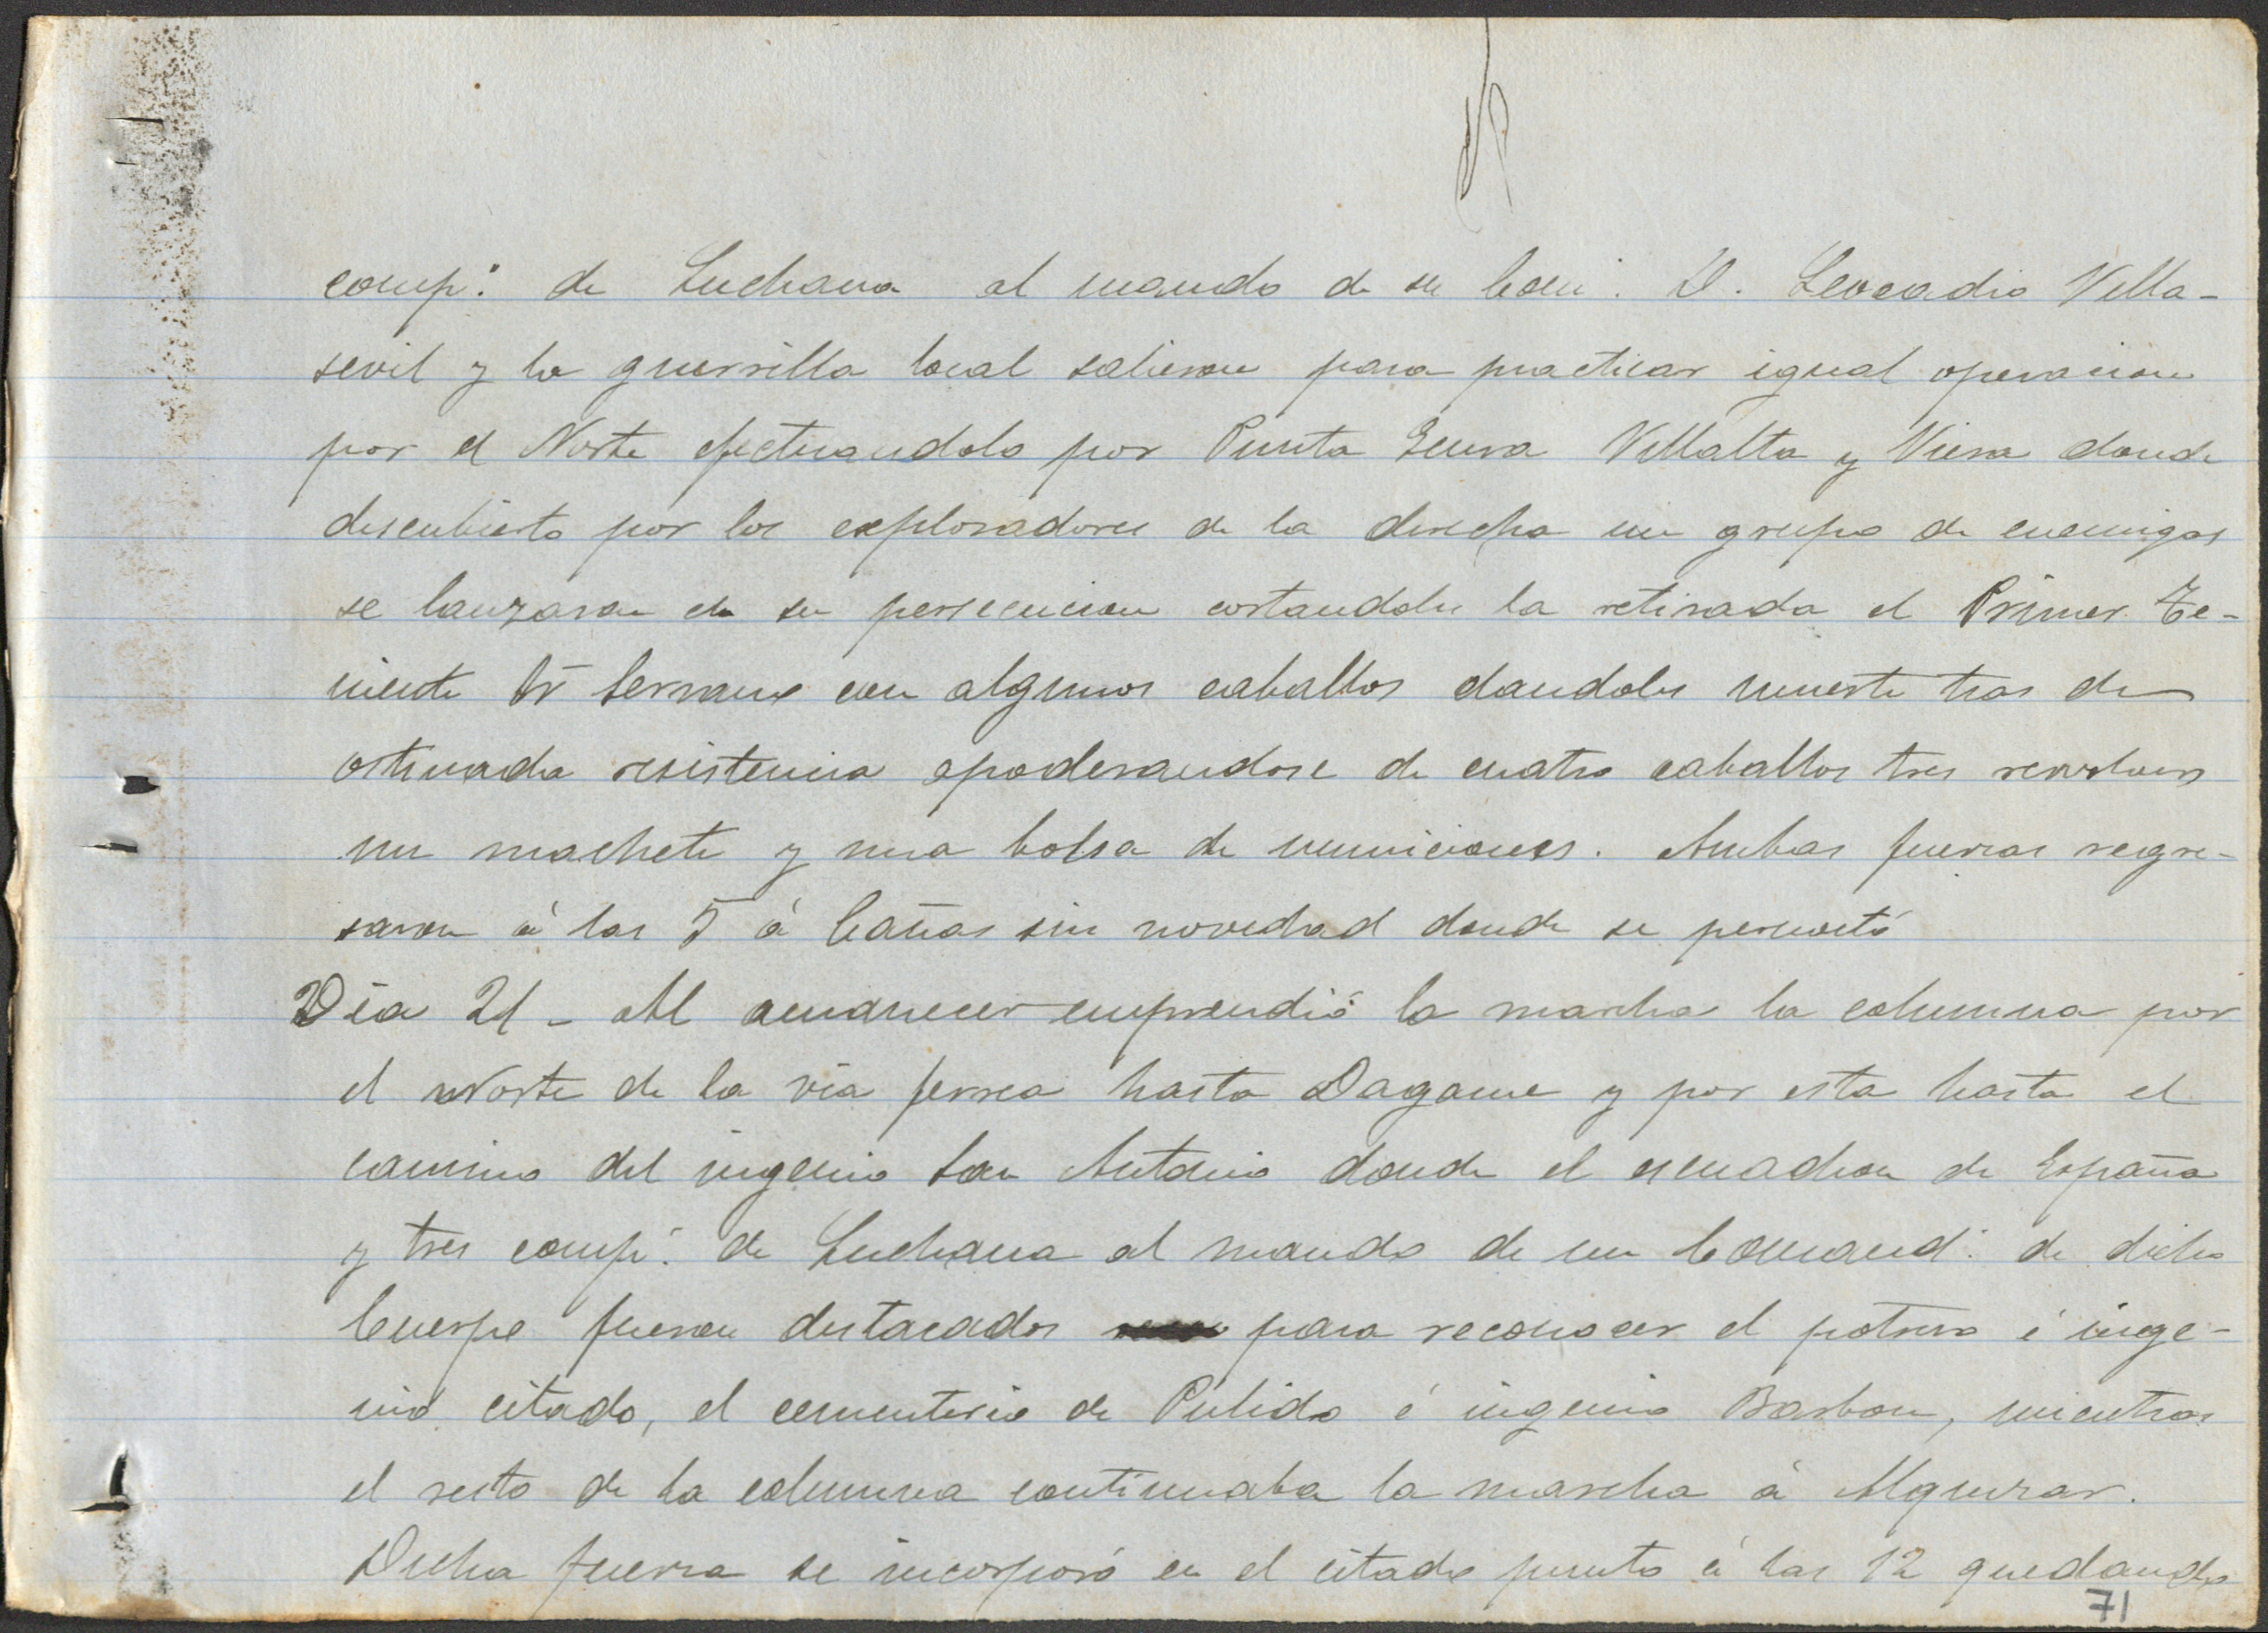 comp.ª de Luchana al mando de su Com.ᵗᵉ D. Leocadio Villa-
sevil y la guerrilla local salieron para practicar igual operacion
por el Norte efectuandolo por Punta Villalta y Viera donde
descubierto por los exploradores de la derecha un grupo de enemigos
se lanzaron en su persecucion cortandoles la retirada el Primer Te-
niente Sr Serrano con algunos caballos dandoles muerte tras de
ostinada resistencia apoderandose de cuatro caballos tres revolvers
un machete y una bolsa de municiones. Ambas fuerzas regre-
saron á las 5 á Cañas sin novedad donde se pernoctó
Dia 21 - Al amanecer emprendió la marcha la columna por
el Norte de la via ferrea hasta Dagame y por esta hasta el
camino del ingenio San Antonio donde el escuadron de España
y tres comp.ˢ de Luchana al mando de un Comand.ᵗᵉ de dicho
Cuerpo fueron destacados para reconocer el potrero é inge-
nio citado, el cementerio de Pulido é ingenio Barbon, mientras
el resto de la columna continuaba la marcha á Alquizar.
Dicha fuerza se incorporó en el citado punto á las 12 quedando
71